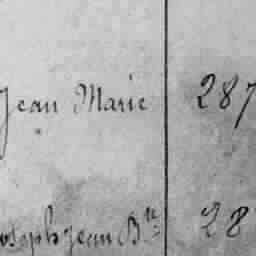 Jean Marie 287
Joseph Jean Bte 28